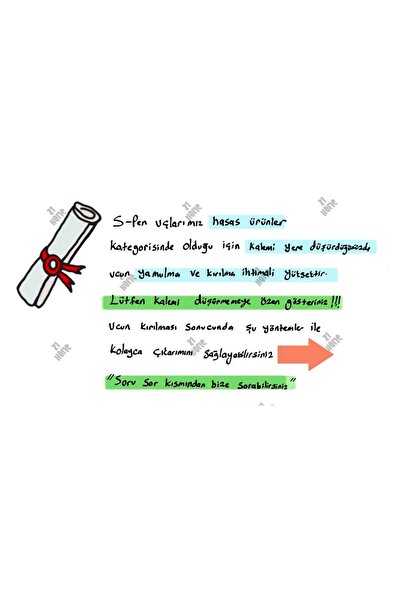 S-Pen uçlarımız hasas ürünler
kategorisinde olduğu için kalemi yere düşürdüğünüzde
ucun yamulma ve kırılma ihtimali yüksektir.
Lütfen kalemi düşürmemeye özen gösteriniz!!!
Ucun kırılması sonucunda şu yöntemler ile
kolayca çıkarımını sağlayabilirsiniz
"Soru Sor kısmından bize sorabilirsiniz"